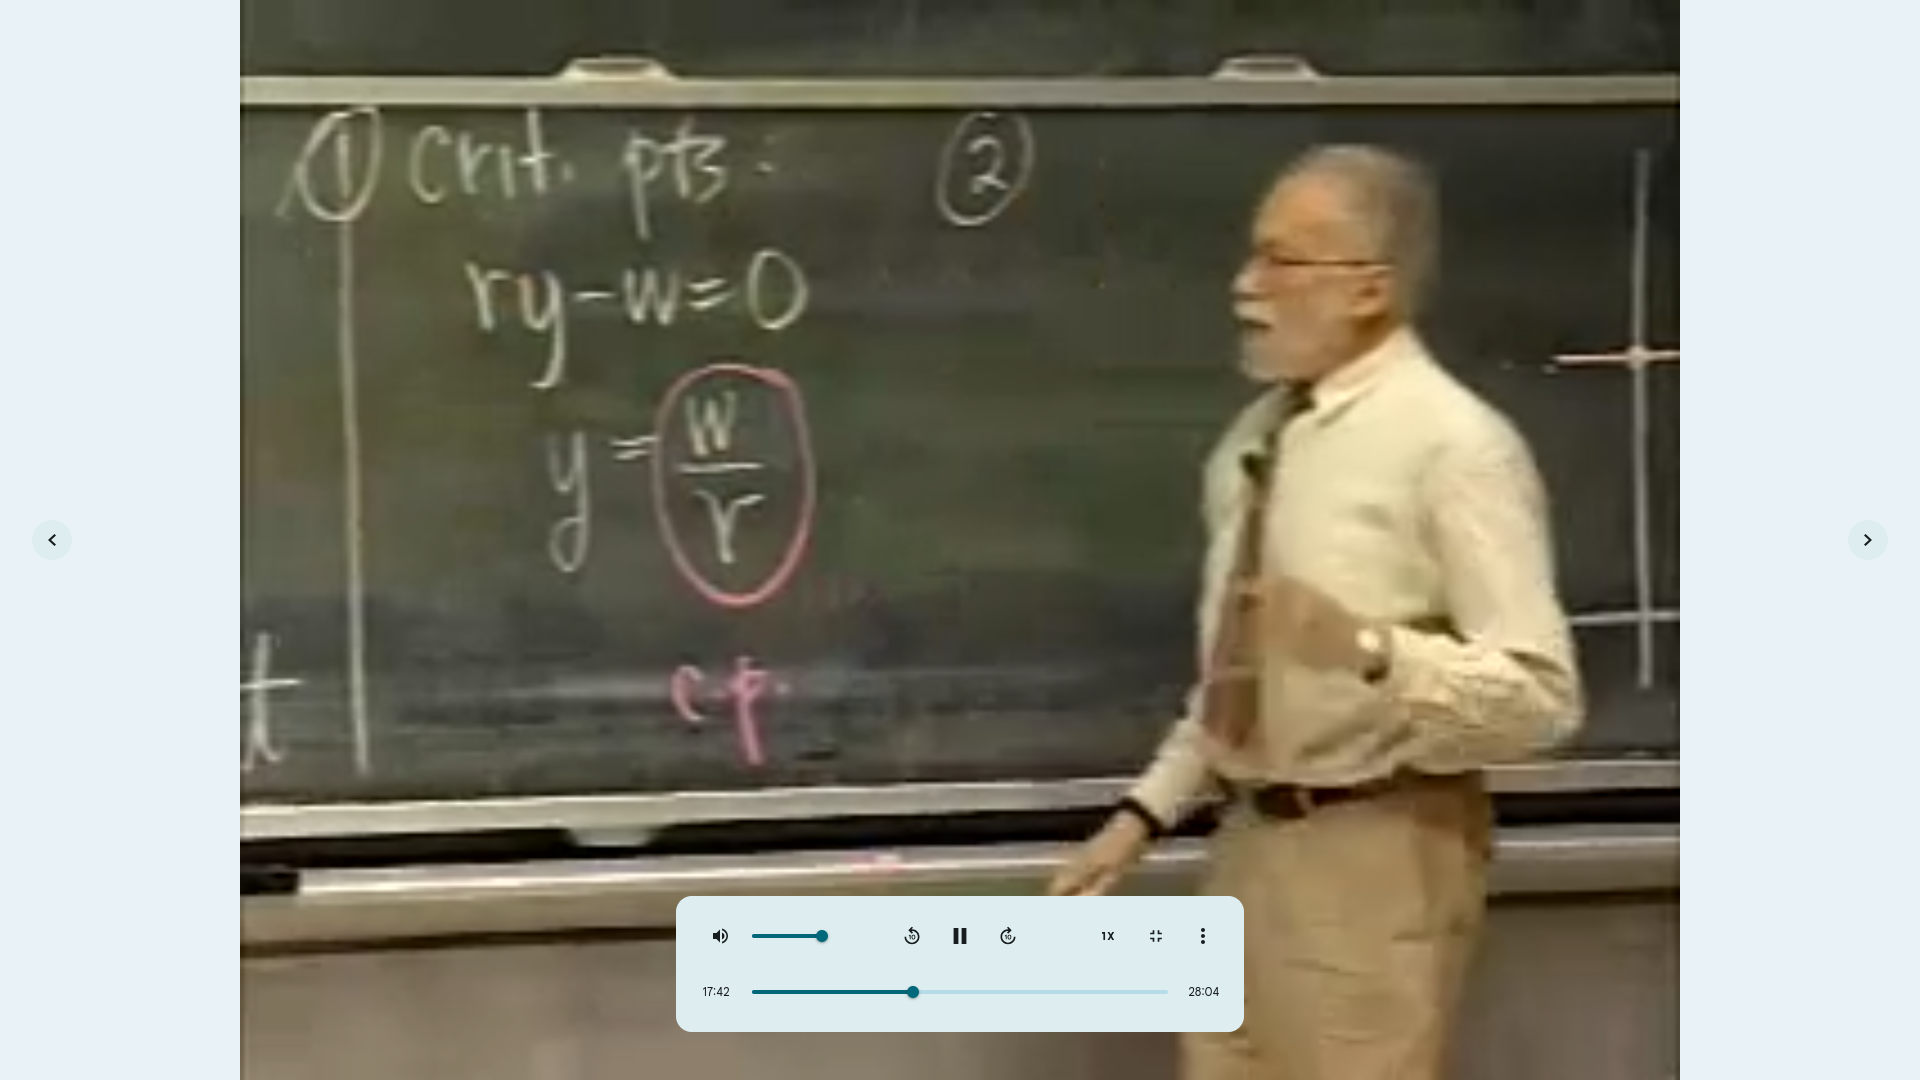 ① Crit. pts:
ry-w=0
y = w/r
c.p.
②
t
1X
17:42
28:04